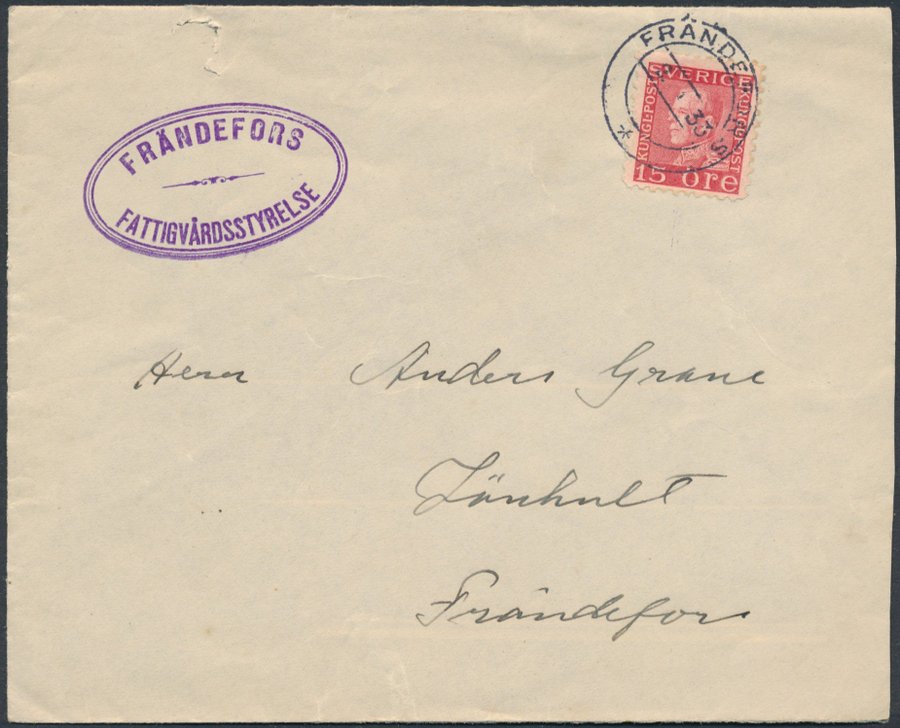 FRÄNDEFORS
FATTIGVÅRDSSTYRELSE
FRÄNDEFORS
33
SVERIGE
KUNGL. POST
KUNGL. POST
15 ÖRE
Herr Anders Grane
Lönhult
Frändefors